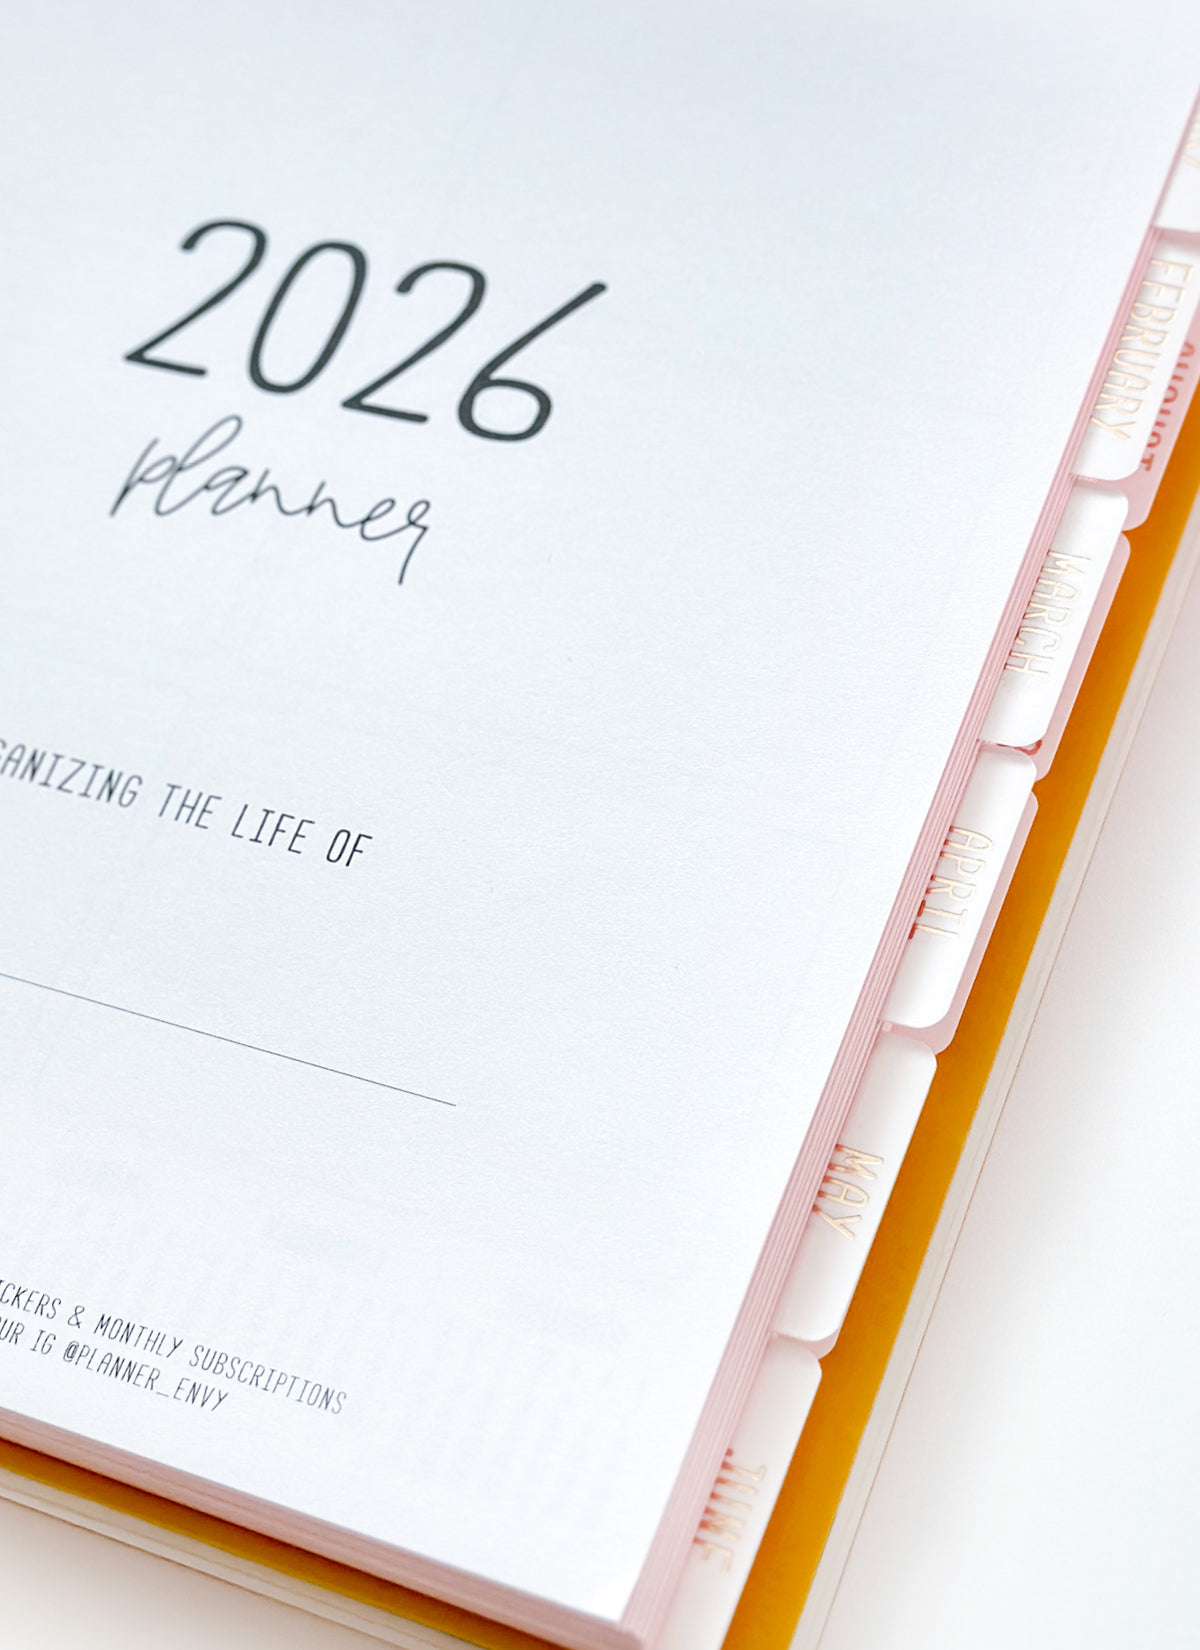 2026
planner
GANIZING THE LIFE OF
ICKERS & MONTHLY SUBSCRIPTIONS
OUR IG @PLANNER_ENVY
FEBRUARY
AUGUST
MARCH
APRIL
MAY
JUNE